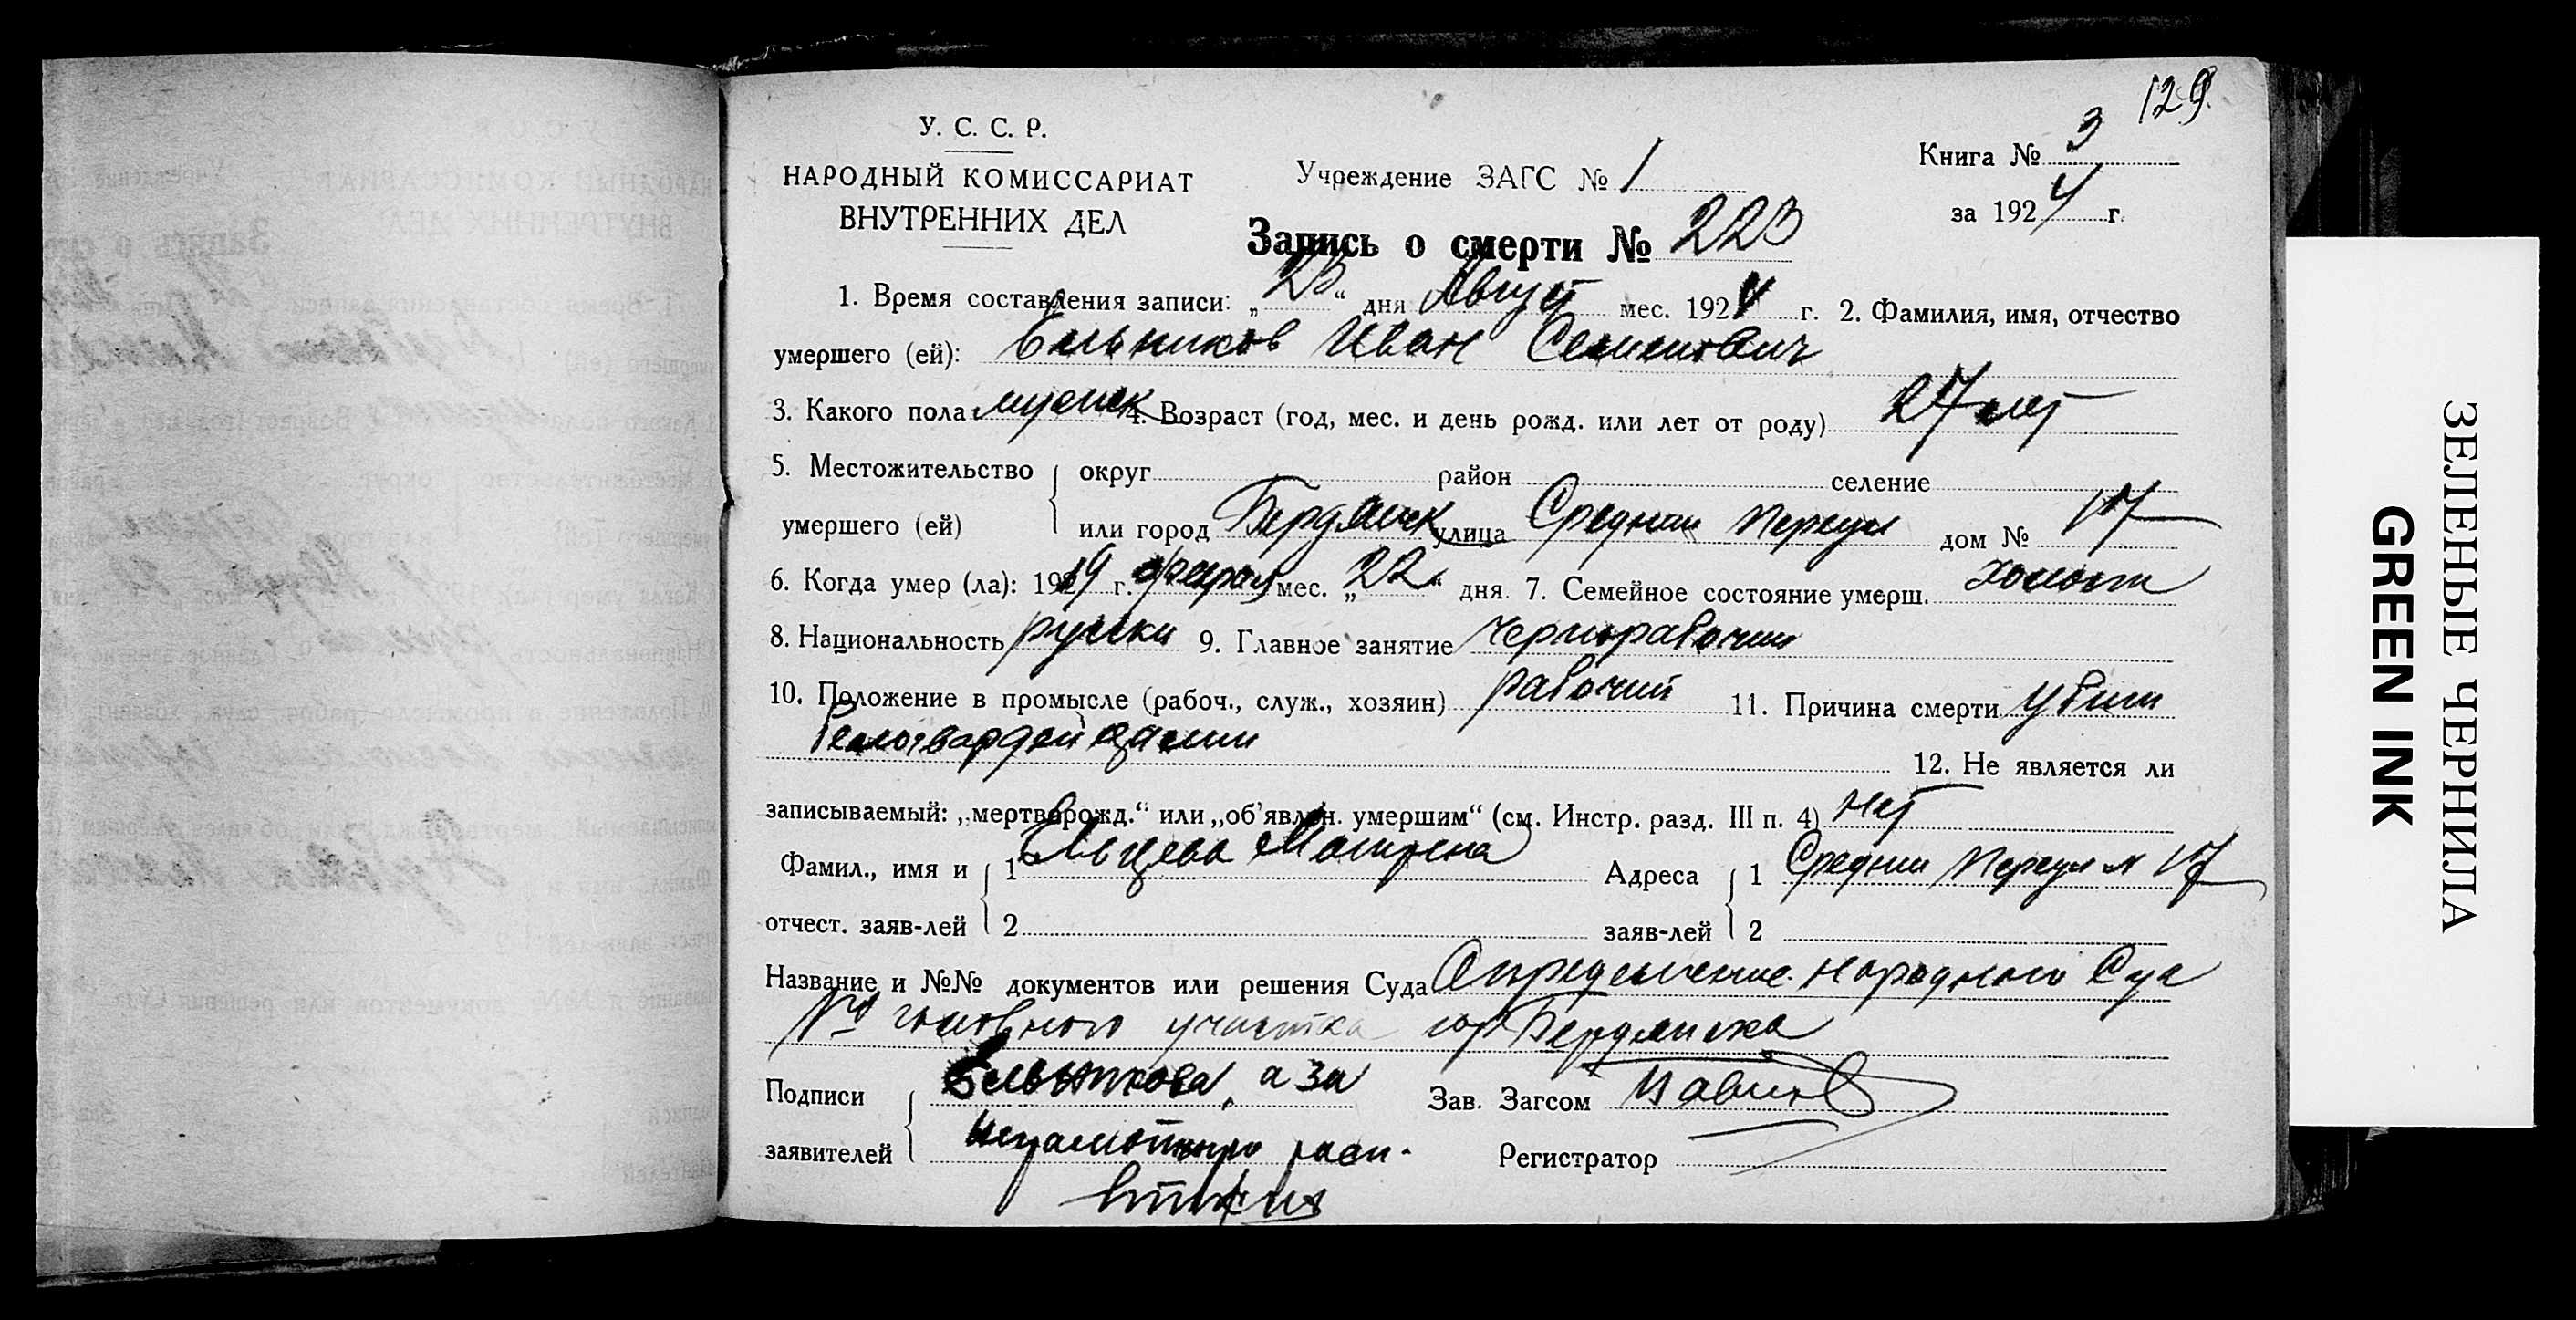 129.
У. С. С. Р.
НАРОДНЫЙ КОМИССАРИАТ
ВНУТРЕННИХ ДЕЛ
Учреждение ЗАГС № 1
Книга № 3
за 1924 г.
Запись о смерти № 223
1. Время составления записи: „23“ дня Август мес. 1924 г. 2. Фамилия, имя, отчество
умершего (ей): Бельников Иван Семенович
3. Какого пола мужск 4. Возраст (год, мес. и день рожд. или лет от роду) 27 лет
5. Местожительство округ район селение
умершего (ей) или город Бердянск улица Средний переул дом № 17
6. Когда умер (ла): 1919 г. февраля мес. „22“ дня 7. Семейное состояние умерш. холост
8. Национальность русски 9. Главное занятие Чернорабочий
10. Положение в промысле (рабоч., служ., хозяин) рабочий 11. Причина смерти убит
белогвардейцами
12. Не является ли
записываемый: „мертворожд.“ или „об'явлен. умершим“ (см. Инстр. разд. III п. 4) нет
Фамил., имя и 1 Матрена Адреса 1 Средний переул № 17
отчест. заяв-лей 2 заяв-лей 2
Название и №№ документов или решения Суда Определение Народного Суда
участка гор Бердянска
Подписи Бельникова, а за Зав. Загсом
заявителей неграмотную расп. Регистратор
ЗЕЛЕНЫЕ ЧЕРНИЛА
GREEN INK